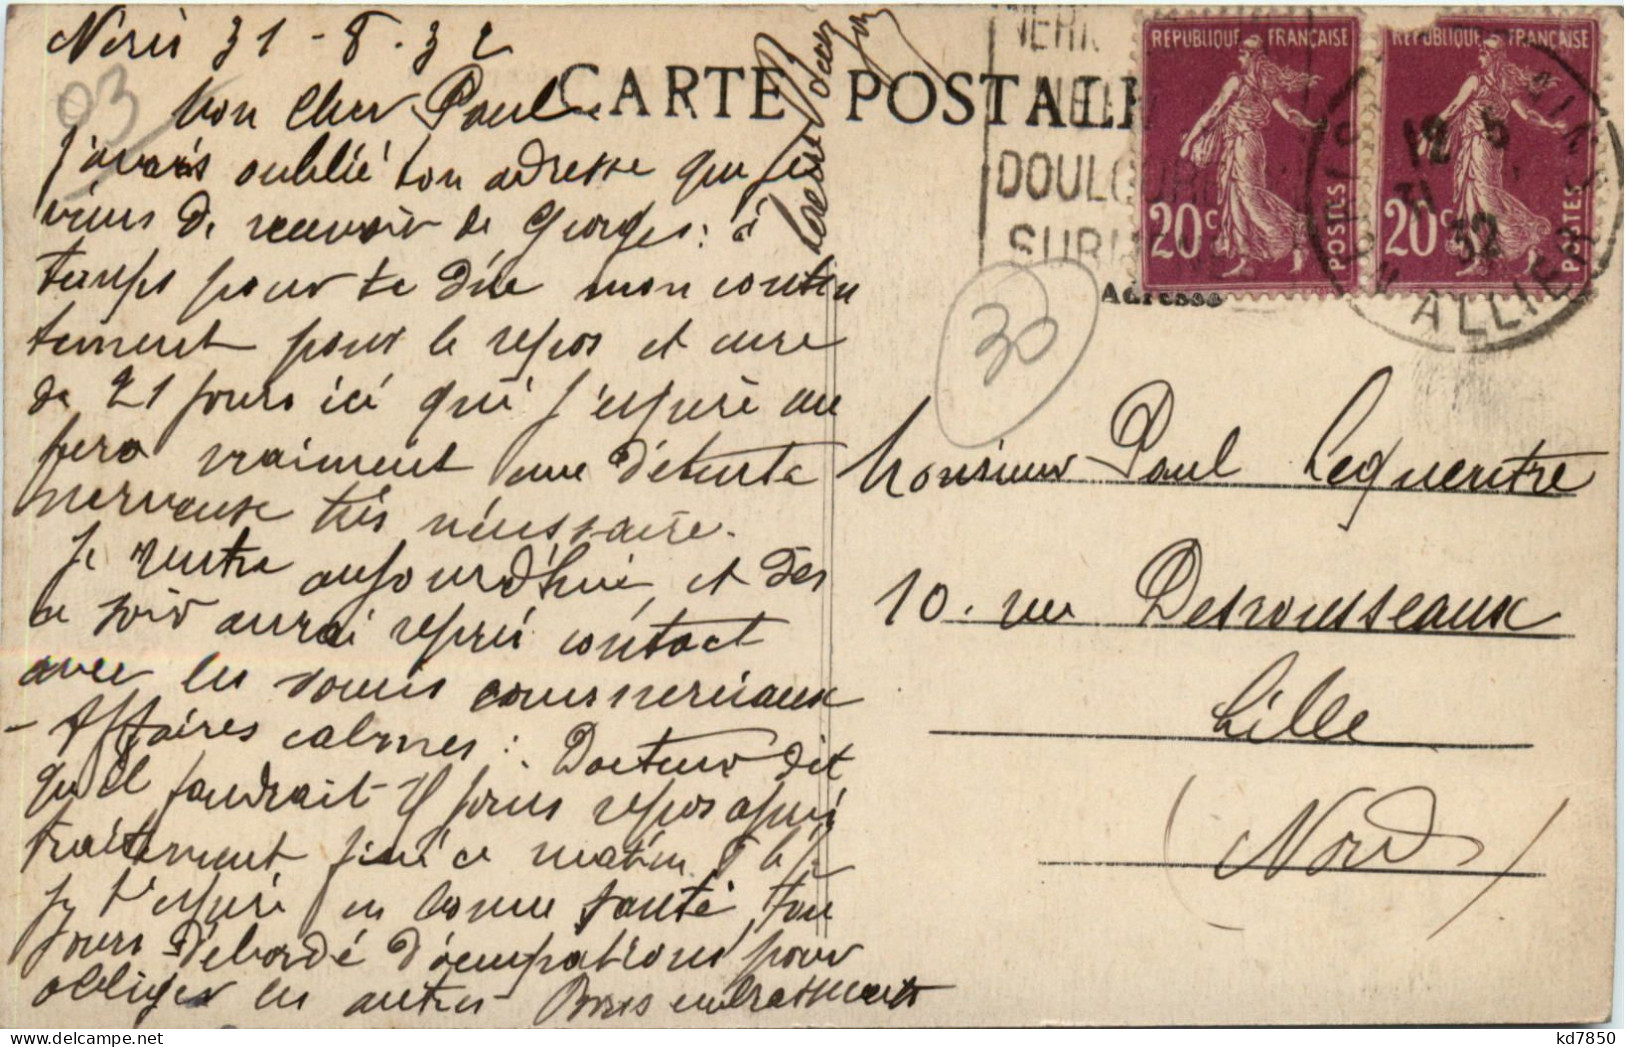 Néris 31-8.32
03
CARTE POSTALE
mon cher Paul.
j'avais oublié ton adresse que je
viens de recevoir de Georges : à
temps pour te dire mon conten
tement pour le repos et cure
de 21 jours ici qui j'espère me
fera vraiment une détente
nerveuse très nécessaire.
Je rentre aujourd'hui, et dès
ce soir aurai repris contact
avec les soucis commerciaux
- Affaires calmes : Docteur dit
qu'il faudrait jours repos après
traitement fini ce matin
Je t'espère en bonne santé, tou
jours débordé d'occupations pour
obliger les autres Bons embrassements
NERI
DOULOUR
SUR
REPUBLIQUE FRANÇAISE
20c
POSTES
REPUBLIQUE FRANÇAISE
20c
POSTES
12 5
31
32
ALLIER
Adresse
30
Monsieur Paul Lequentre
10. rue Desrousseaux
Lille
(Nord)
kd7850